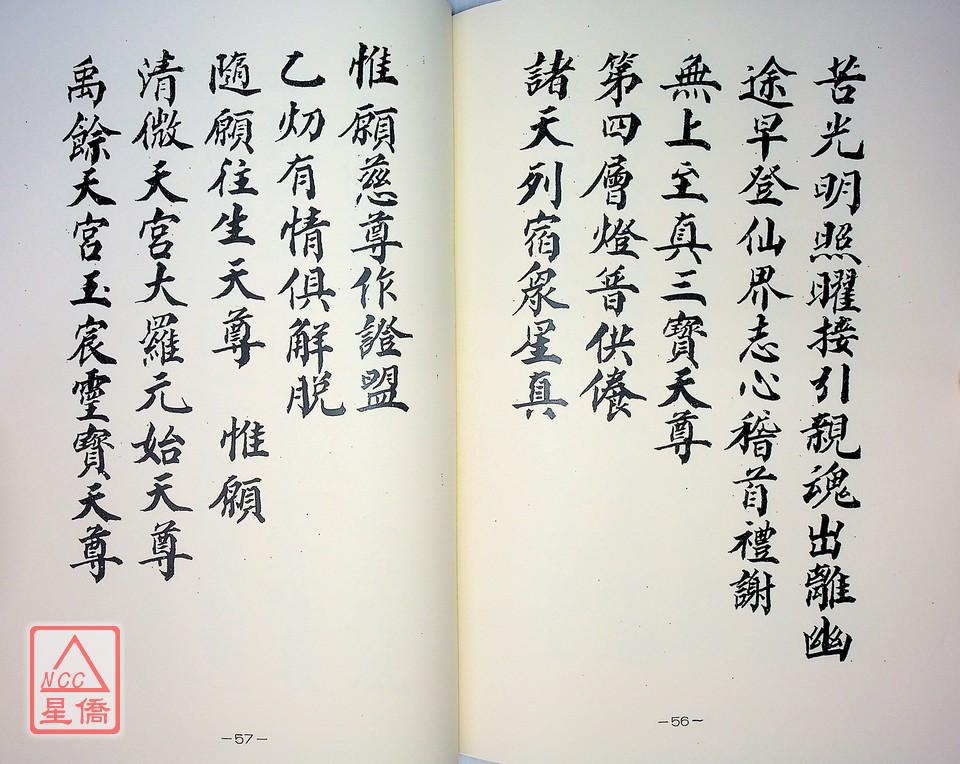 苦光明照曜接引親魂出離幽
途早登仙界志心稽首禮謝
無上至真三寶天尊
第四層燈普供養
諸天列宿眾星真
－56－
惟願慈尊作證盟
乙切有情俱解脫
隨願往生天尊　惟願
清微天宮大羅元始天尊
禹餘天宮玉宸靈寶天尊
－57－
NCC
星僑